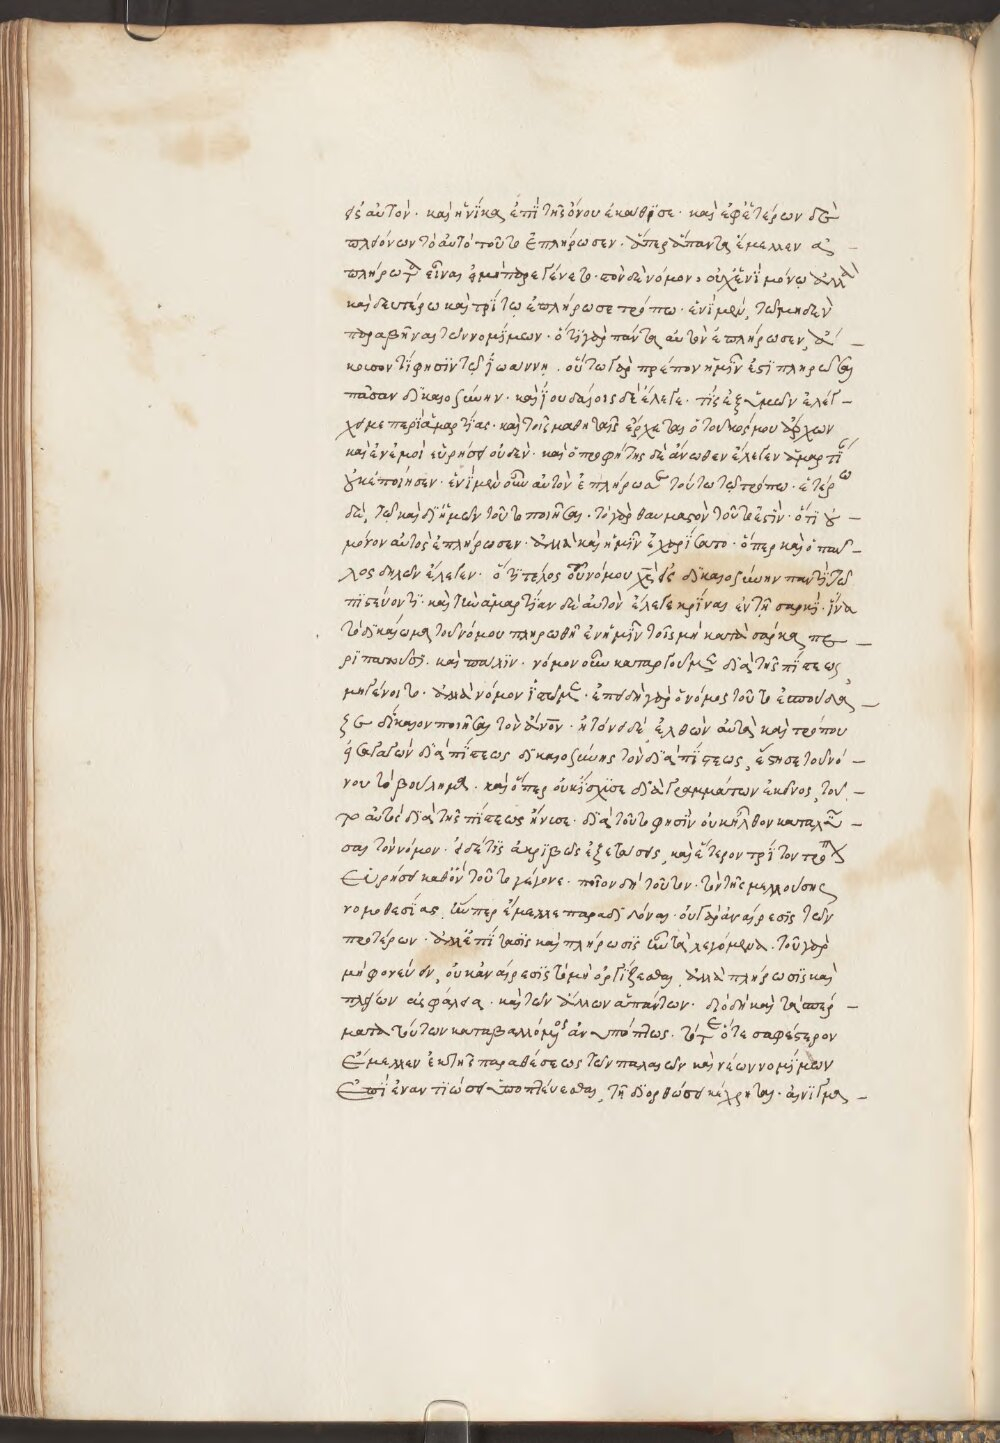 εἰς αὐτόν· καὶ ἡνίκα ἐπὶ τῆς ὄνου ἐκάθισε· καὶ ἐφ' ἑτέρων δὲ
πλειόνων τὸ αὐτὸ τοῦτο ἐπλήρωσεν· ἅπερ ἅπαντα ἔμελλεν ἀ
πλήρωτα εἶναι εἰ μὴ παρεγένετο· τὸν δὲ νόμον, οὐχ ἑνὶ μόνῳ ἀλλὰ
καὶ δευτέρῳ καὶ τρίτῳ ἐπλήρωσε τρόπῳ· ἑνὶ μὲν, τῷ μηδὲν
παραβῆναι τῶν νομίμων· ὅτι γὰρ πάντα αὐτὸν ἐπλήρωσεν, ἄ
κουσον τί φησὶν τῷ ἰωάννῃ. οὕτω γὰρ πρέπον ἡμῖν ἐστὶ πληρῶσαι
πᾶσαν δικαιοσύνην· καὶ ἰουδαίοις δὲ ἔλεγε· τίς ἐξ ὑμῶν ἐλέγ
χει με περὶ ἁμαρτίας· καὶ τοῖς μαθηταῖς ἔρχεται ὁ τοῦ κόσμου ἄρχων
καὶ ἐν ἐμοὶ εὑρήσει οὐδέν· καὶ ὁ προφήτης δὲ ἄνωθεν ἔλεγεν ἁμαρτί
οὐκ ἐποίησεν· ἑνὶ μὲν οὖν αὐτὸν ἐπλήρωσε τούτῳ τῷ τρόπῳ· ἑτέρῳ
δὲ, τῷ καὶ δι' ἡμῶν τοῦτο ποιῆσαι· τὸ γὰρ θαυμαστὸν τοῦτό ἐστιν· ὅτι οὐ
μόνον αὐτὸς ἐπλήρωσεν· ἀλλὰ καὶ ἡμῖν ἐχαρίσατο· ὅπερ καὶ ὁ παῦ
λος δηλῶν ἔλεγεν· ὅτι τέλος τοῦ νόμου χς εἰς δικαιοσύνην παντὶ τῷ
πιστεύοντι· καὶ τὴν ἁμαρτίαν δὲ αὐτὸν ἔλεγε κρῖναι ἐν τῇ σαρκί· ἵνα
τὸ δικαίωμα τοῦ νόμου πληρωθῇ ἐν ἡμῖν τοῖς μὴ κατὰ σάρκα πε
ριπατοῦσι. καὶ πάλιν· νόμον οὖν καταργοῦμεν διὰ τῆς πίστεως,
μὴ γένοιτο· ἀλλὰ νόμον ἱστῶμεν· ἐπειδὴ γὰρ ὁ νόμος τοῦτο ἐσπούδα
ζε δίκαιον ποιῆσαι τὸν ἄνον· ἠτόνει δὲ, ἐλθὼν αὐτὸς καὶ τρόπον
εἰσαγαγὼν διὰ πίστεως δικαιοσύνης τὸν διὰ πίστεως, ἔστησε τοῦ νό
μου τὸ βούλημα· καὶ ὅπερ οὐκ ἴσχυσε διὰ γραμμάτων ἐκεῖνος, τοῦ
το αὐτὸς διὰ τῆς πίστεως ἤνυσε· διὰ τοῦτο φησὶν οὐκ ἦλθον καταλῦ
σαι τὸν νόμον· εἰ δέ τις ἀκριβῶς ἐξετάσοι, καὶ ἕτερον τρίτον τρόπον
εὑρήσει καθ' ὃν τοῦτο γέγονε· ποῖον δὴ τοῦτον· τὸν τῆς μελλούσης
νομοθεσίας, ἥνπερ ἔμελλε παραδιδόναι· οὐ γὰρ ἀναίρεσις τῶν
προτέρων· ἀλλ' ἐπίτασις καὶ πλήρωσις ἦν τὰ λεγόμενα. τοῦ γὰρ
μὴ φονεύειν, οὐκ ἀναίρεσις τὸ μὴ ὀργίζεσθαι, ἀλλὰ πλήρωσις καὶ
πλείων ἀσφάλεια· καὶ τῶν ἄλλων ἁπάντων. διὸ δὴ καὶ τὰ σπέρ
ματα τούτων καταβαλλόμενος ἀνυπόπτως· τότε ὅτε σαφέστερον
ἔμελλεν ἐκ τῆς παραθέσεως τῶν παλαιῶν καὶ νέων νομίμων
ἐπὶ ἐναντιώσει ὑποπτεύεσθαι, τῇ διορθώσει κέχρηται· αἰνίγμα